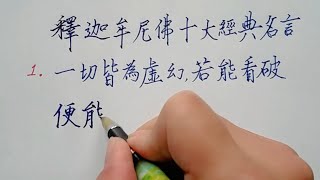 釋迦牟尼佛十大經典名言
1. 一切皆為虛幻,若能看破
便能